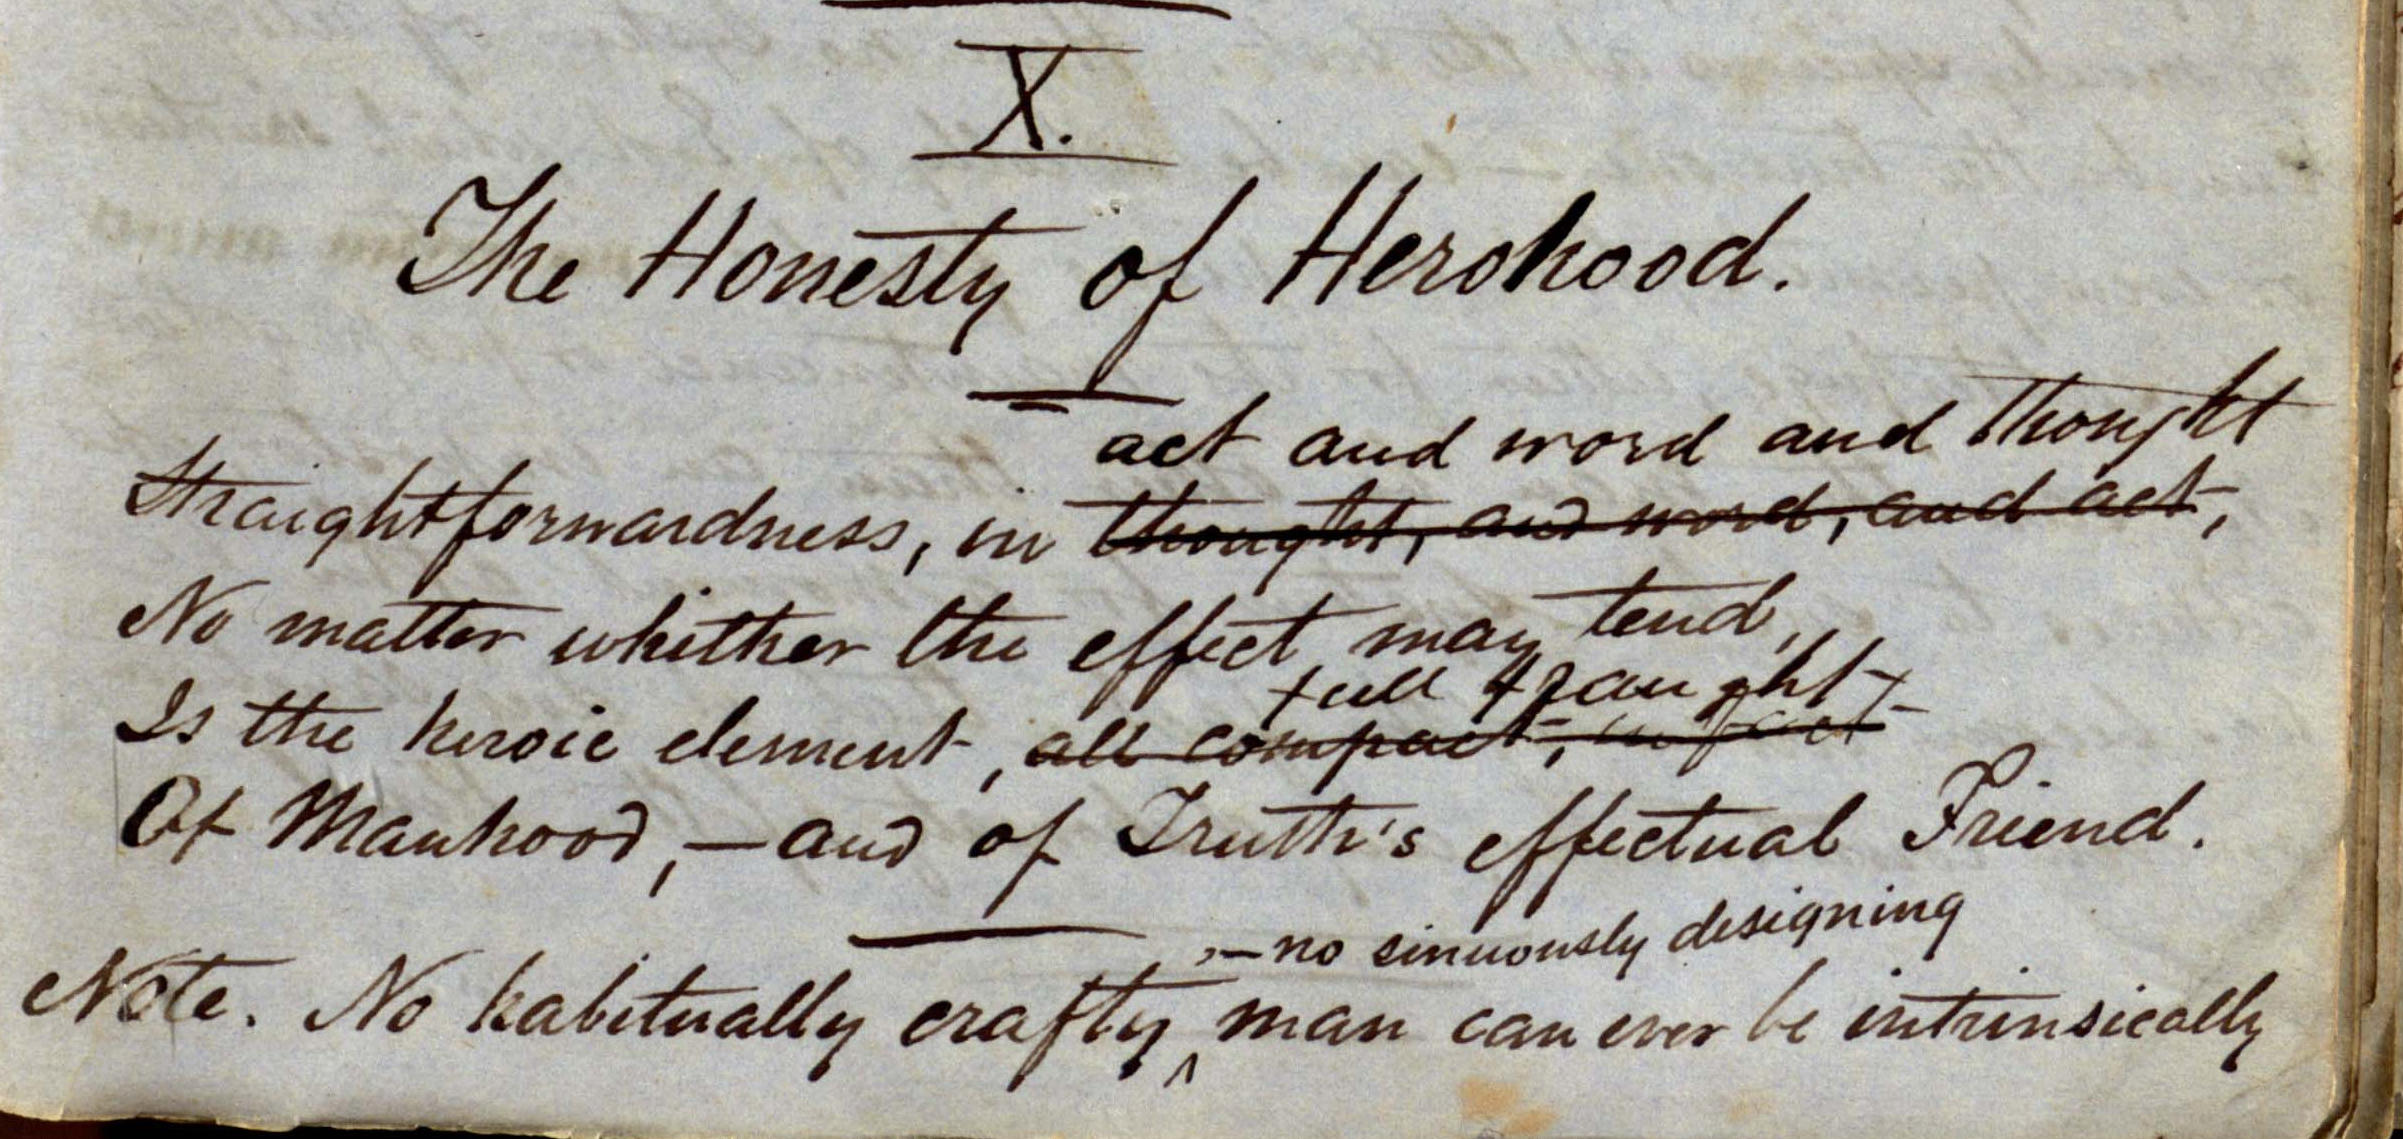 X.
The Honesty of Herohood.
act and word and thought
Straightforwardness, in thought, and word, and act,
No matter whither the effect may tend,
full fraught
Is the heroic element, all compact, in fact
Of Manhood,—and of Truth's effectual Friend.
,—no sinuously designing
Note. No habitually crafty ^ man can ever be intrinsically